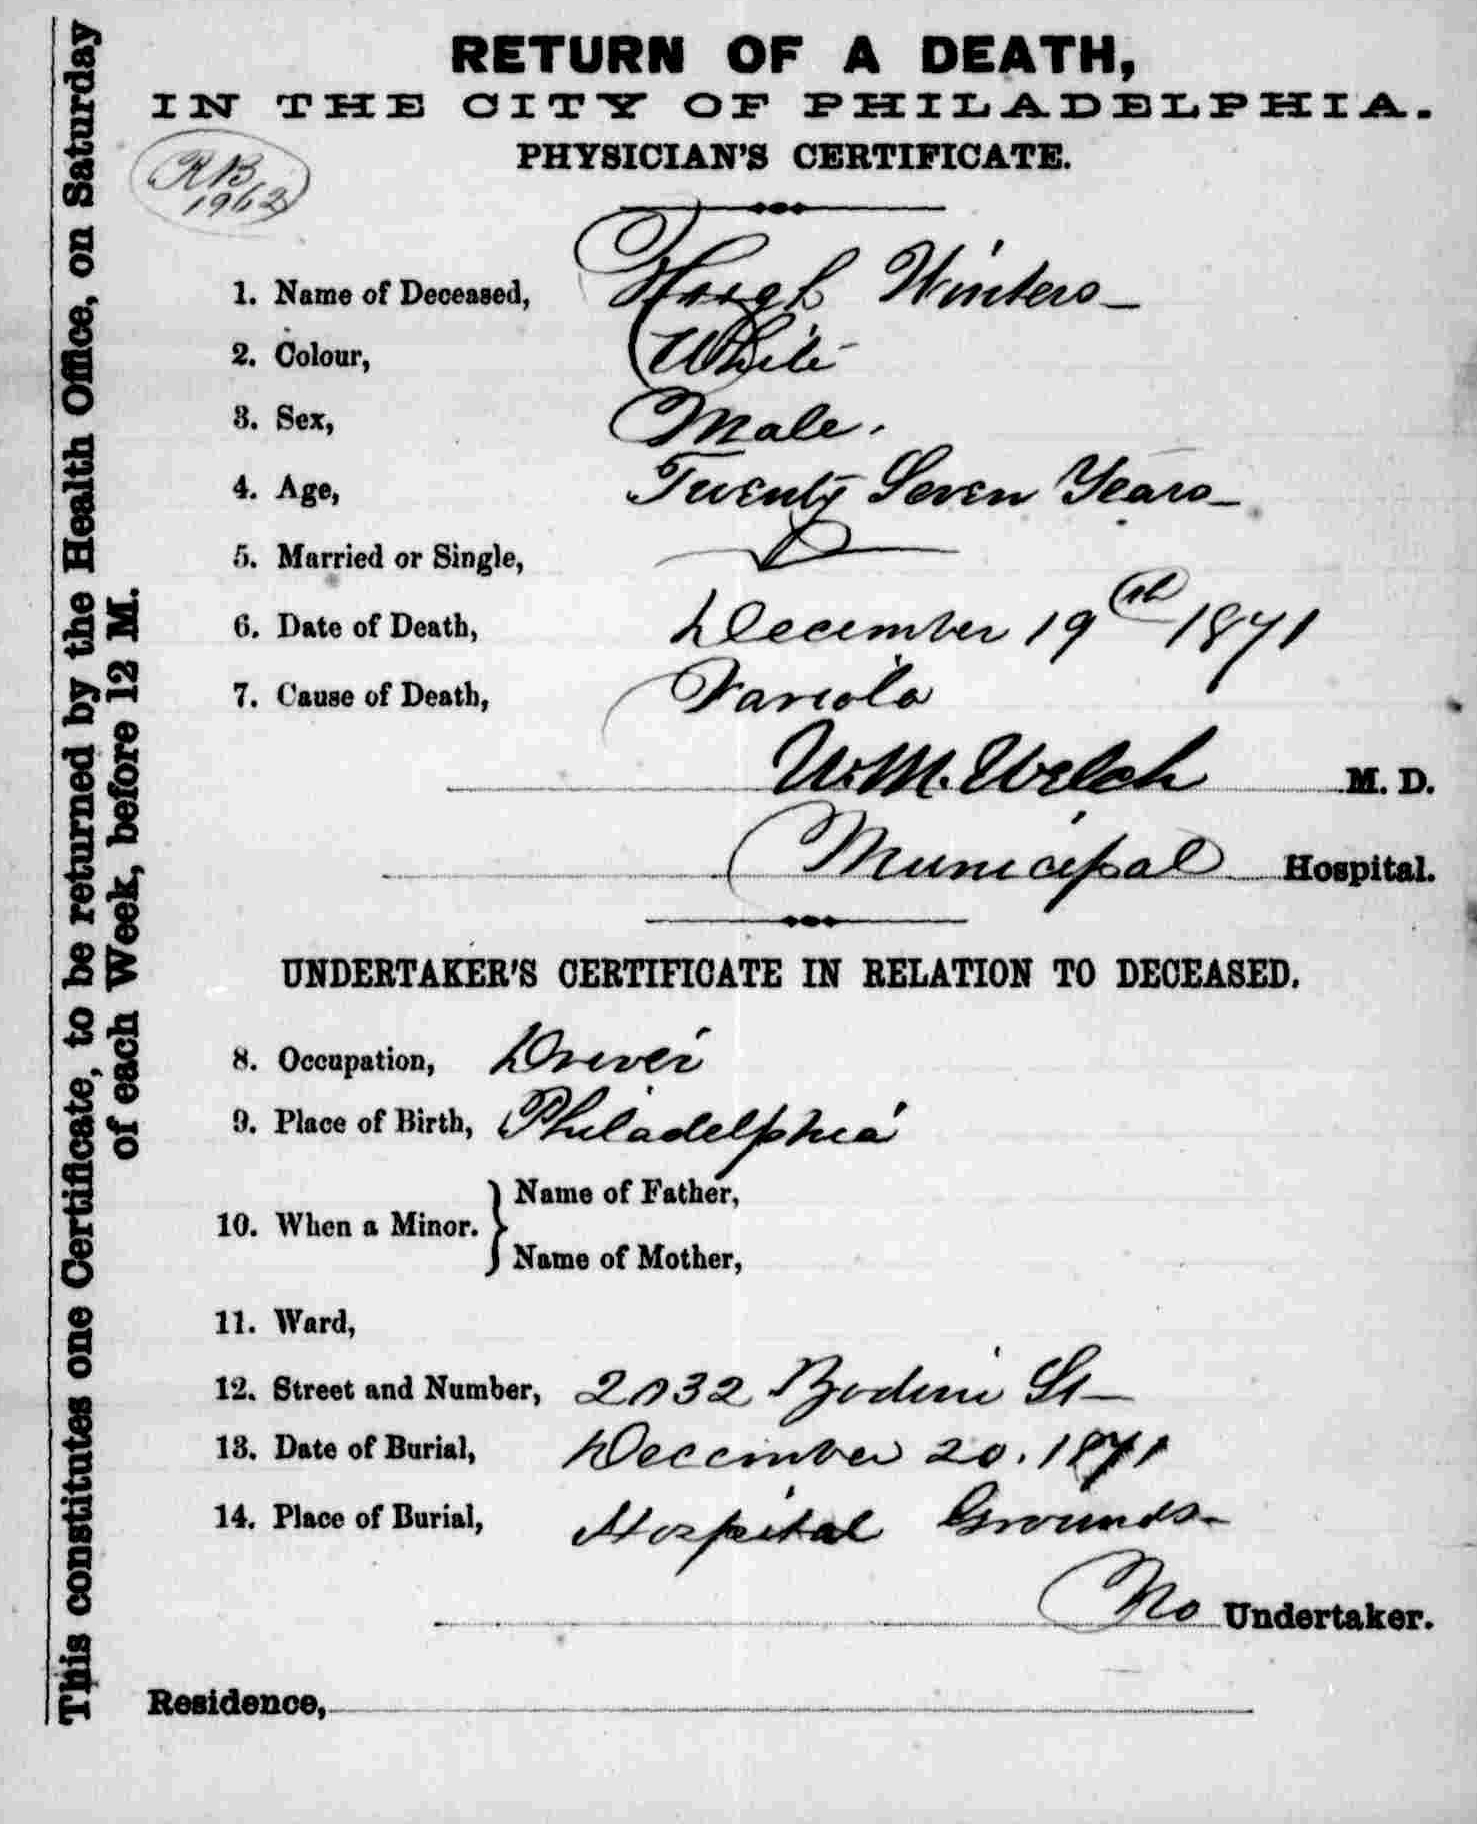 RETURN OF A DEATH,
IN THE CITY OF PHILADELPHIA.
PHYSICIAN'S CERTIFICATE.
RB
1962
1. Name of Deceased, Hugh Winters
2. Colour, White
3. Sex, Male.
4. Age, Twenty Seven Years
5. Married or Single,
6. Date of Death, December 19th 1871
7. Cause of Death, Variola
W. M. Welch M. D.
Municipal Hospital.
UNDERTAKER'S CERTIFICATE IN RELATION TO DECEASED.
8. Occupation, Driver
9. Place of Birth, Philadelphia
10. When a Minor. } Name of Father,
Name of Mother,
11. Ward,
12. Street and Number, 2132 Bodine St
13. Date of Burial, December 20. 1871
14. Place of Burial, Hospital Grounds
No Undertaker.
Residence,
This constitutes one Certificate, to be returned by the Health Office, on Saturday
of each Week, before 12 M.